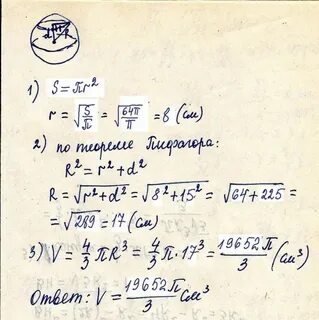 d r R
1) S = πr²
r = √(S/π) = √(64π/π) = 8 (см)
2) по теореме Пифагора:
R² = r² + d²
R = √(r² + d²) = √(8² + 15²) = √(64 + 225) =
= √289 = 17 (см)
3) V = 4/3 πR³ = 4/3 π · 17³ = 19652π/3 (см³)
Ответ: V = 19652π/3 см³